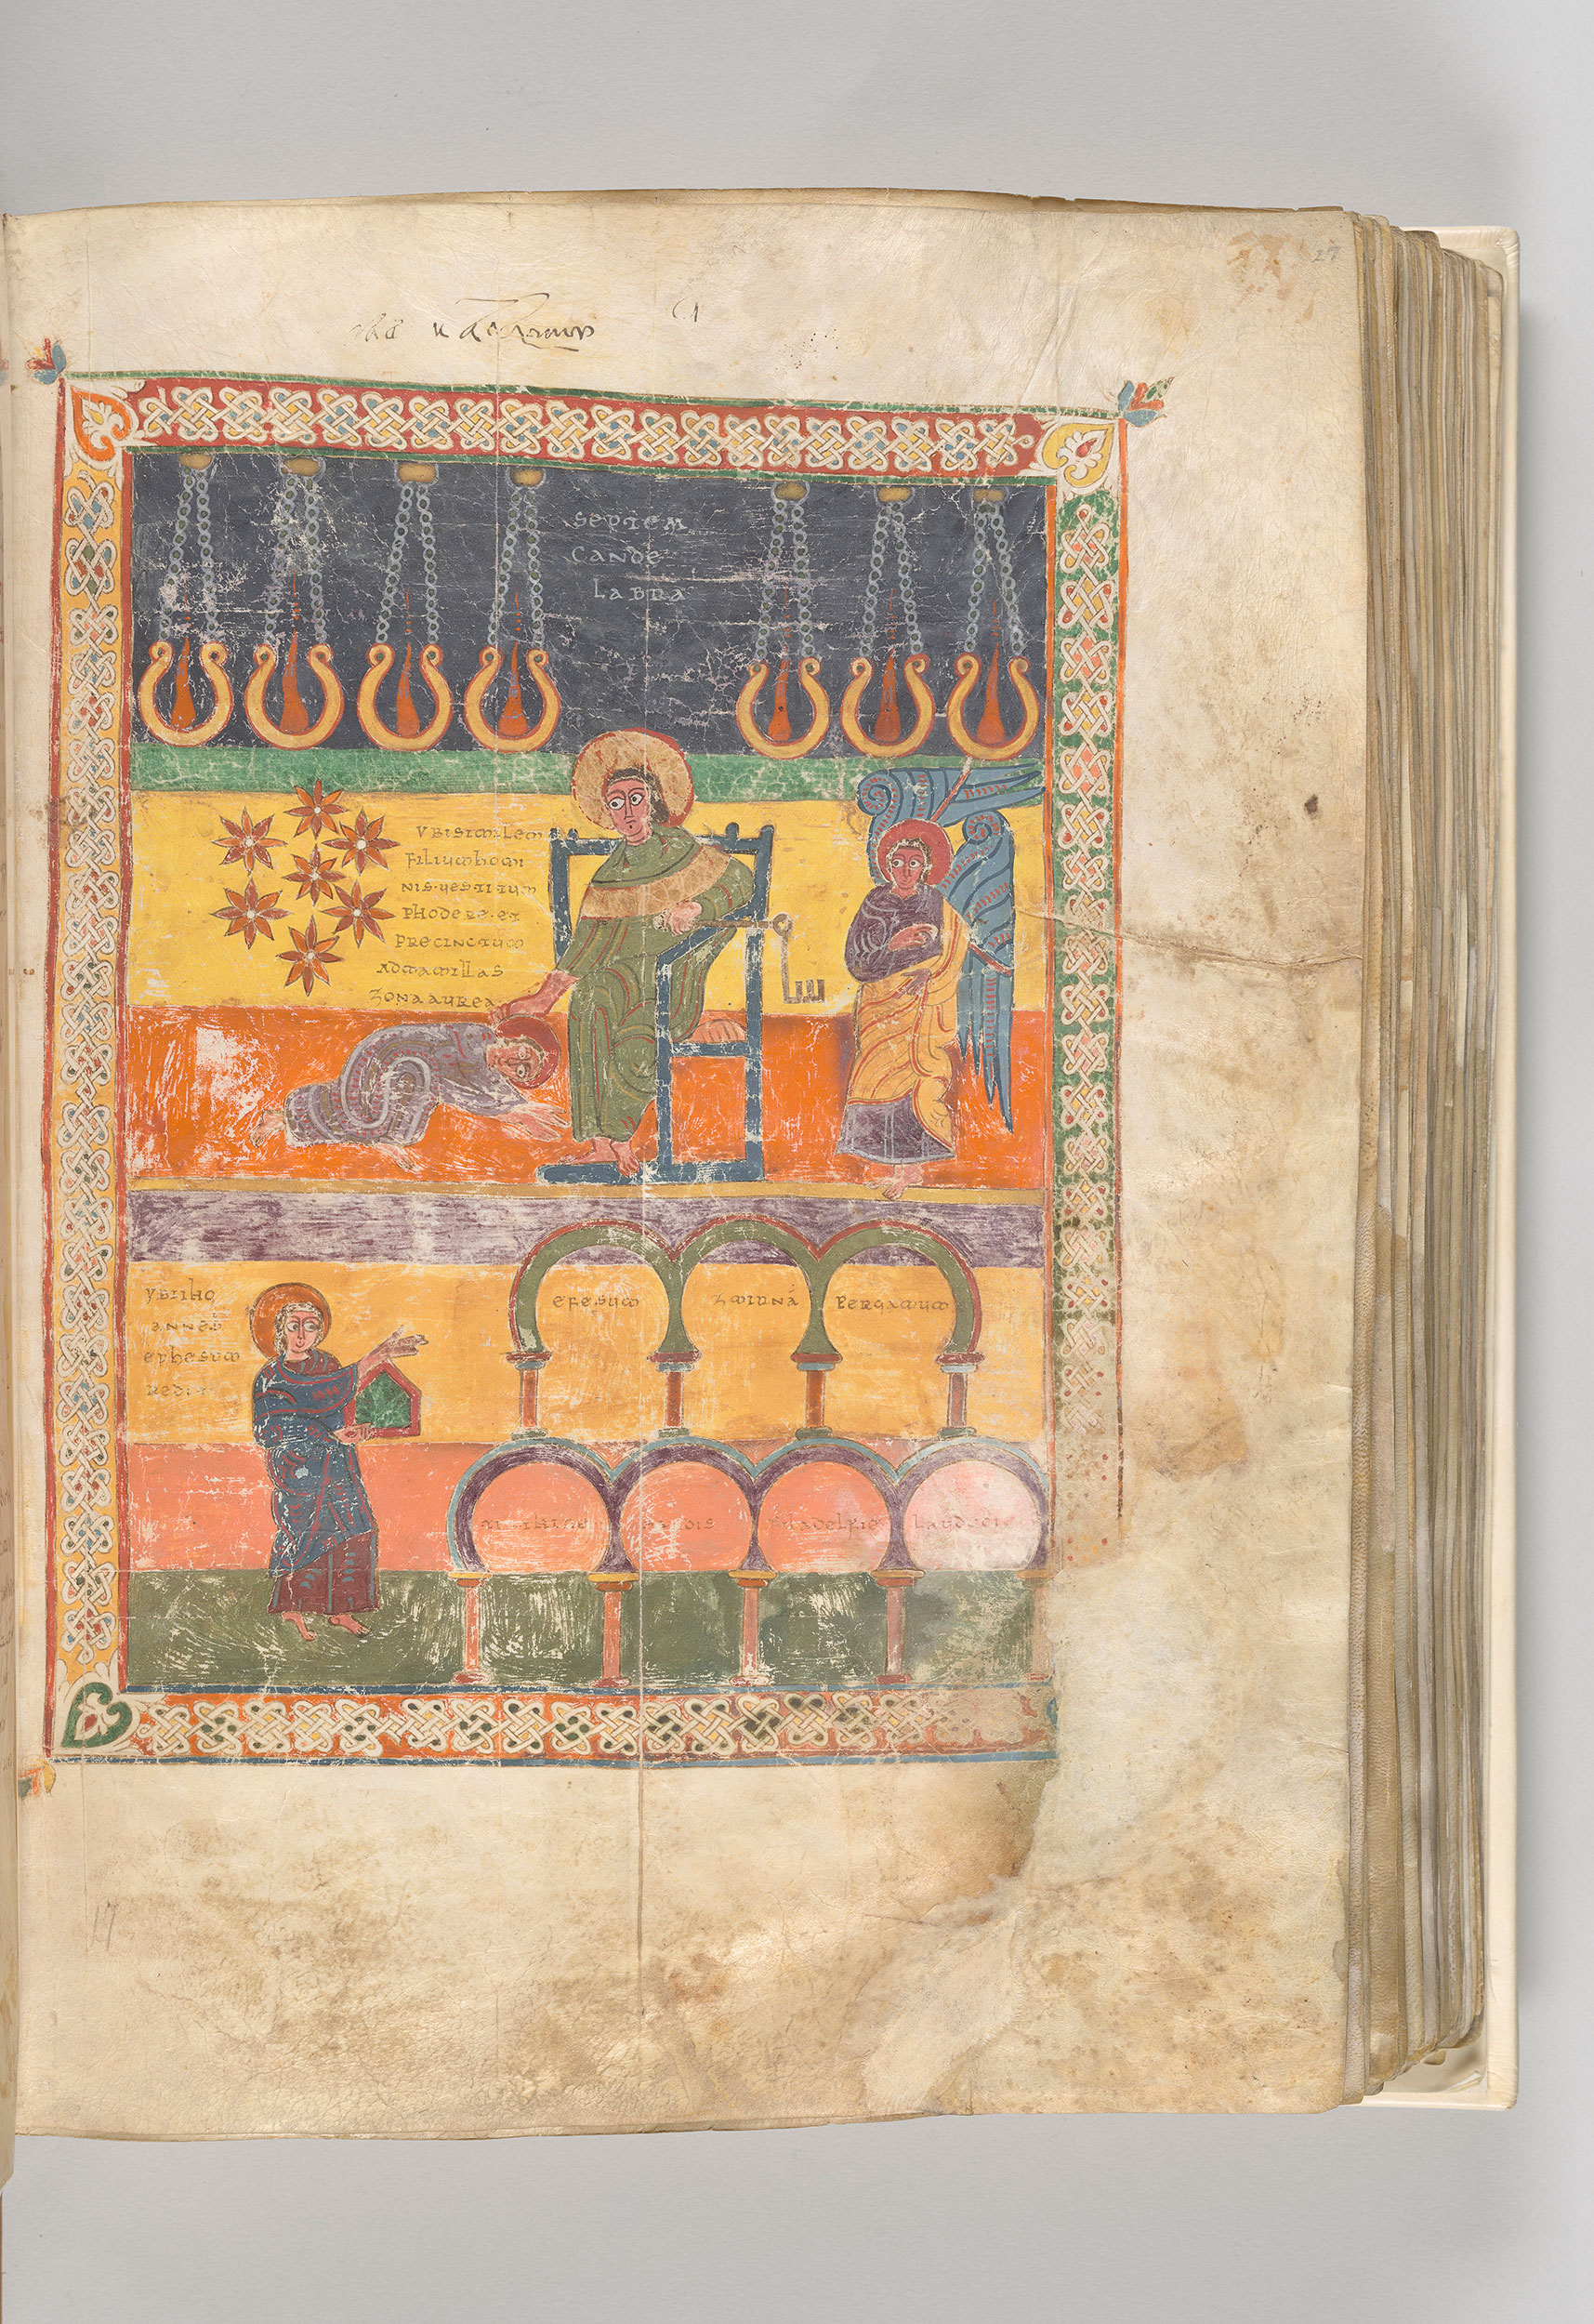 27
SEPTEM
CANDE
LABRA
VBISIMILEM
FILIUMHOMI
NIS·UESTITUM
PHODERE·ET
PRECINCTUM
ADMAMILLAS
ZONAAUREA
YBIIHO
ANNES
EPHESUM
EFESUM ZMIRNA PERGAMUM
LAUDUCIE
17